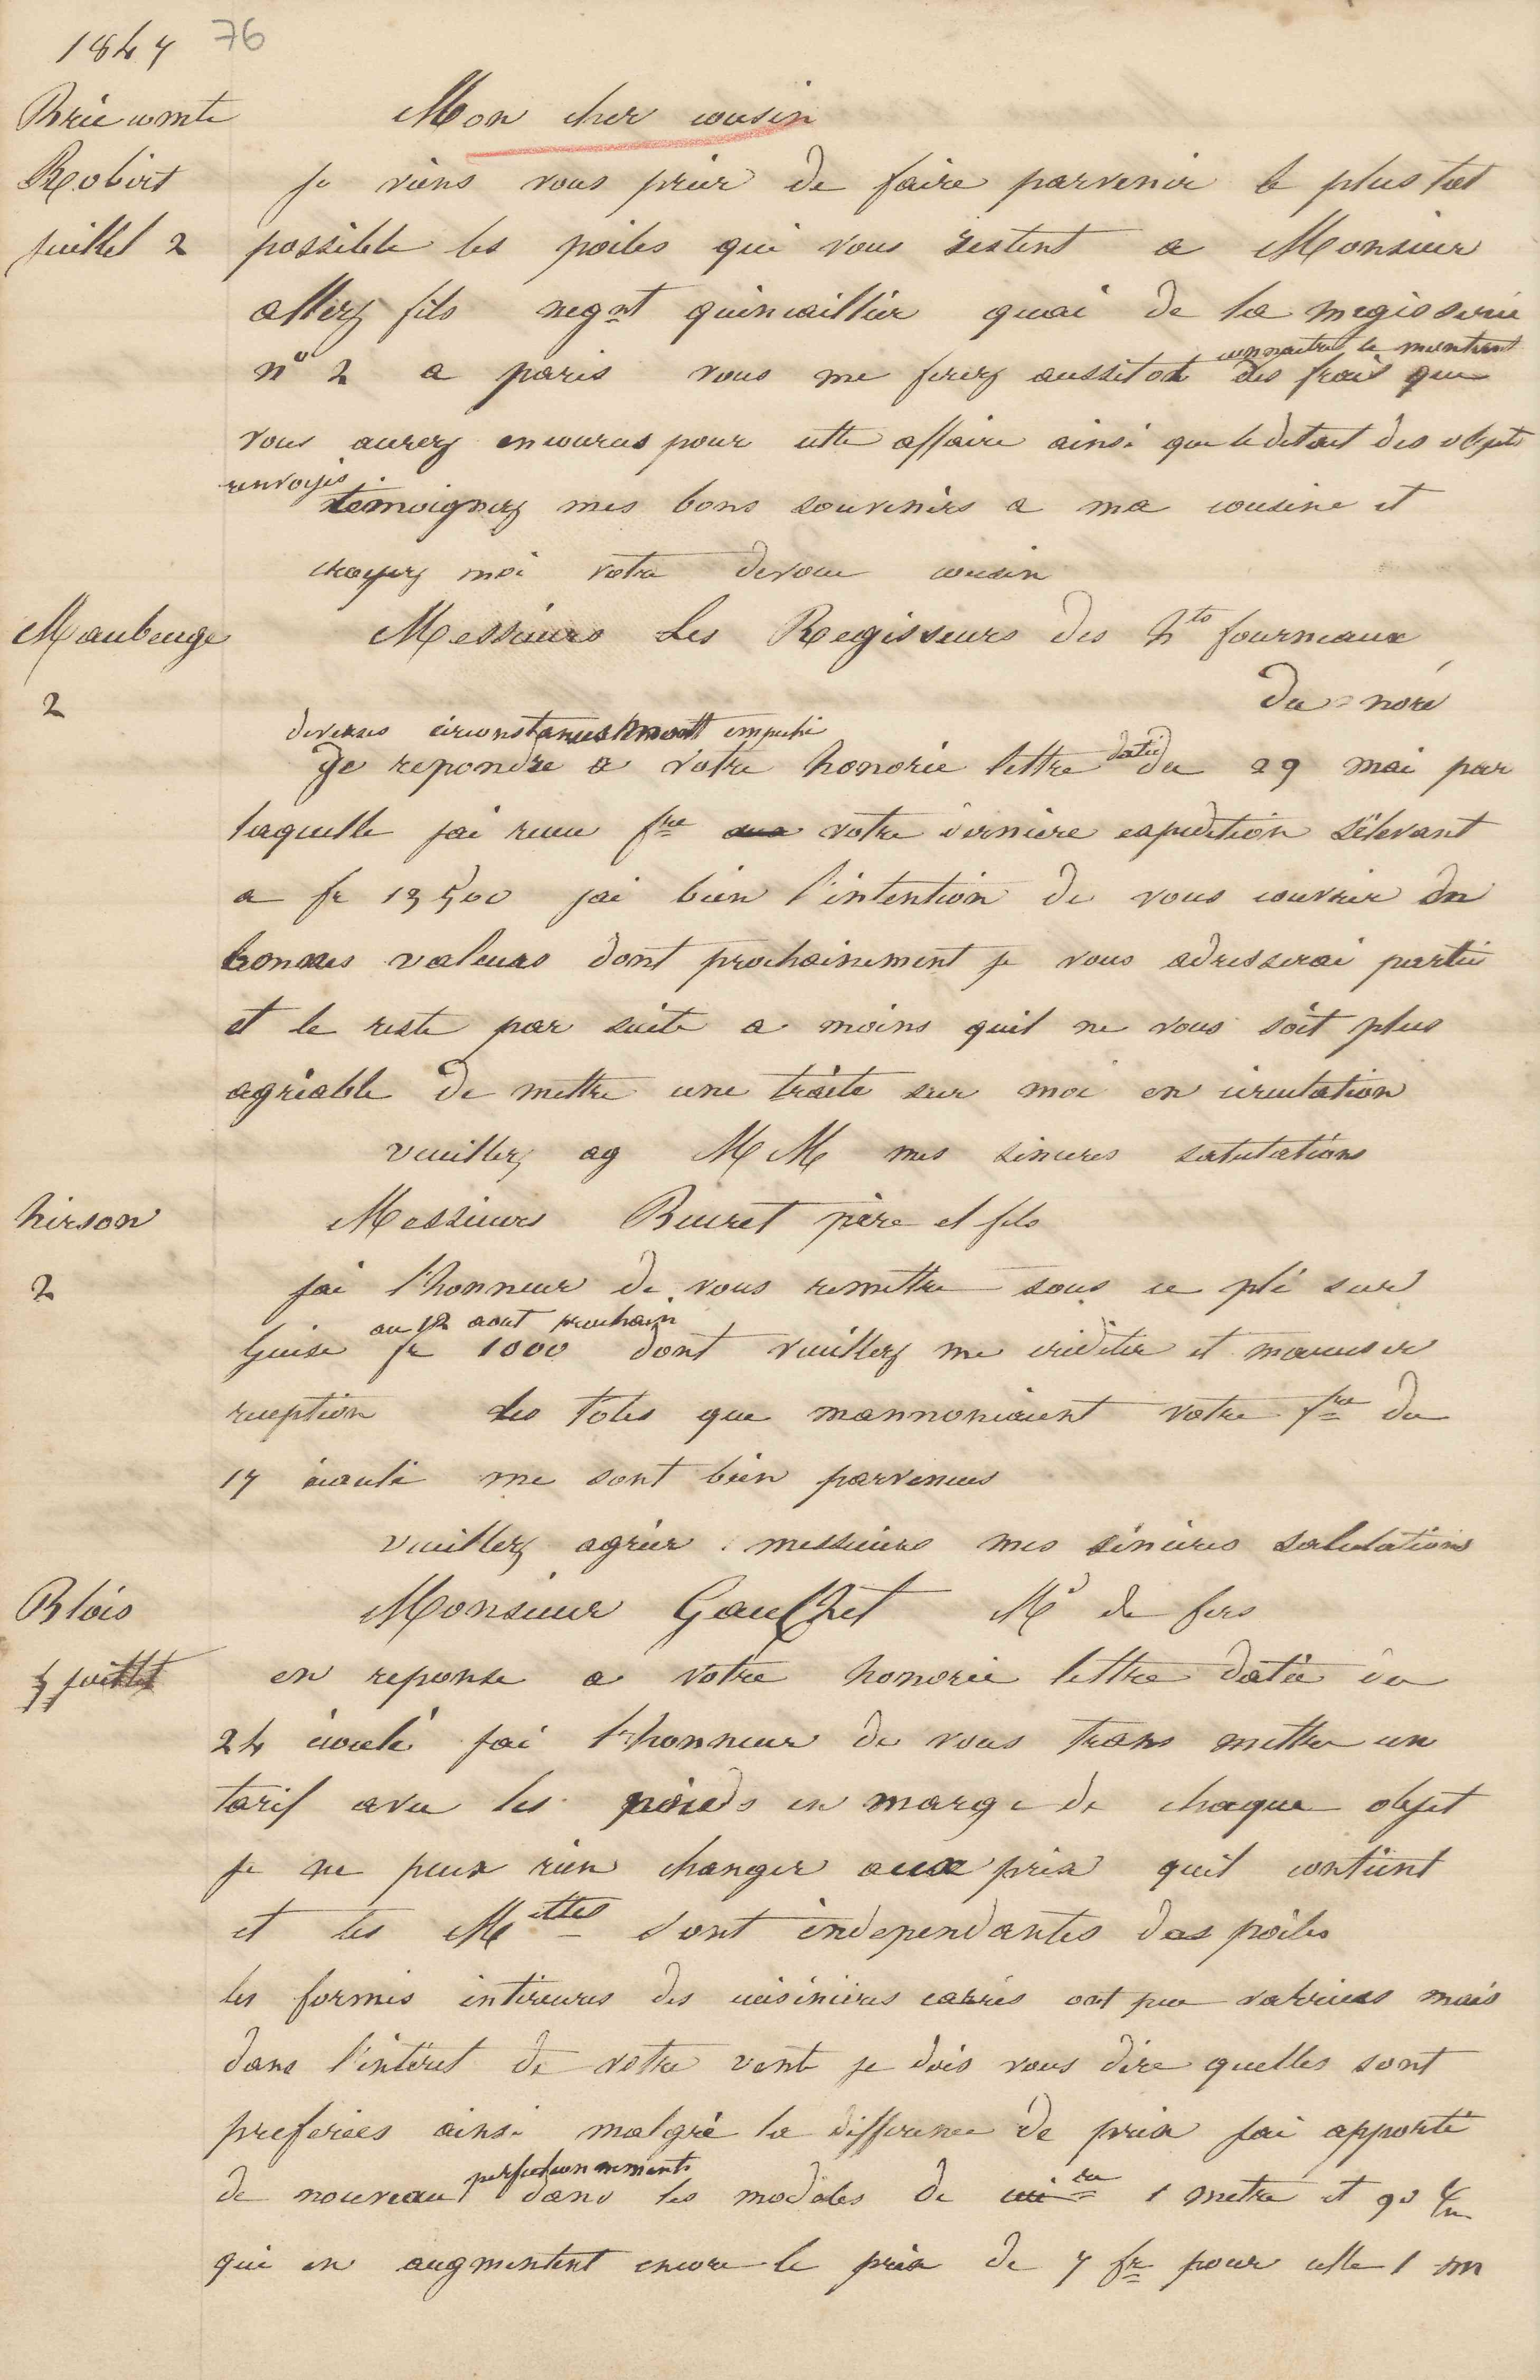 1847 76
Brie comte
Robert
juillet 2
Mon cher cousin
je viens vous prier de faire parvenir le plus tot
possible les poiles qui vous restent a Monsieur
allez fils negnt quincaillier quai de la megisserie
connaitre le montant
n° 2 a paris vous me ferez aussitot des frais que
vous aurez encourus pour cette affaire ainsi que le detail des objets
renvoyés.
temoignez mes bons souvenirs a ma cousine et
croyez moi votre devoue cousin
Maubeuge
2
Messieurs Les Regisseurs des hts fourneaux
du nord
diverses circonstances mont empeche
de repondre a votre honorée lettre datée du 29 mai par
laquelle jai recu fre votre derniere expedition s'elevant
a fr 13500 jai bien l'intention de vous couvrir en
bonnes valeurs dont prochainement je vous adresserai partie
et le reste par suite a moins quil ne vous soit plus
agréable de mettre une traite sur moi en circulation
veuillez ag MM mes sinceres salutations
hirson
2
Messieurs Beuret père et fils
jai l'honneur de vous remettre sous ce pli sur
au 12 aout prochain
Guise fr 1000 dont veuillez me créditer et maccuser
reception Les Toles que mannoncaient votre fre du
17 écoulé me sont bien parvenues
veuillez agréer messieurs mes sincères salutations
Blois
juillet
Monsieur Gauchet Md de fers
en reponse a votre honorée lettre datée du
24 écoulé jai l'honneur de vous trans mettre un
tarif avec les poids en marge de chaque objet
je ne peux rien changer aux prix quil contient
et les Mettes sont independantes des poiles
les formes intérieures des cuisinières carrés ont peu variées mais
dans l'intéret de votre vente je dois vous dire quelles sont
preferées ainsi malgré la difference de prix jai apporté
perfectionnements
de nouveau dans les modeles de 1 metre et 90 c/m
qui en augmentent encore le prix de 7 fr pour celle 1 m